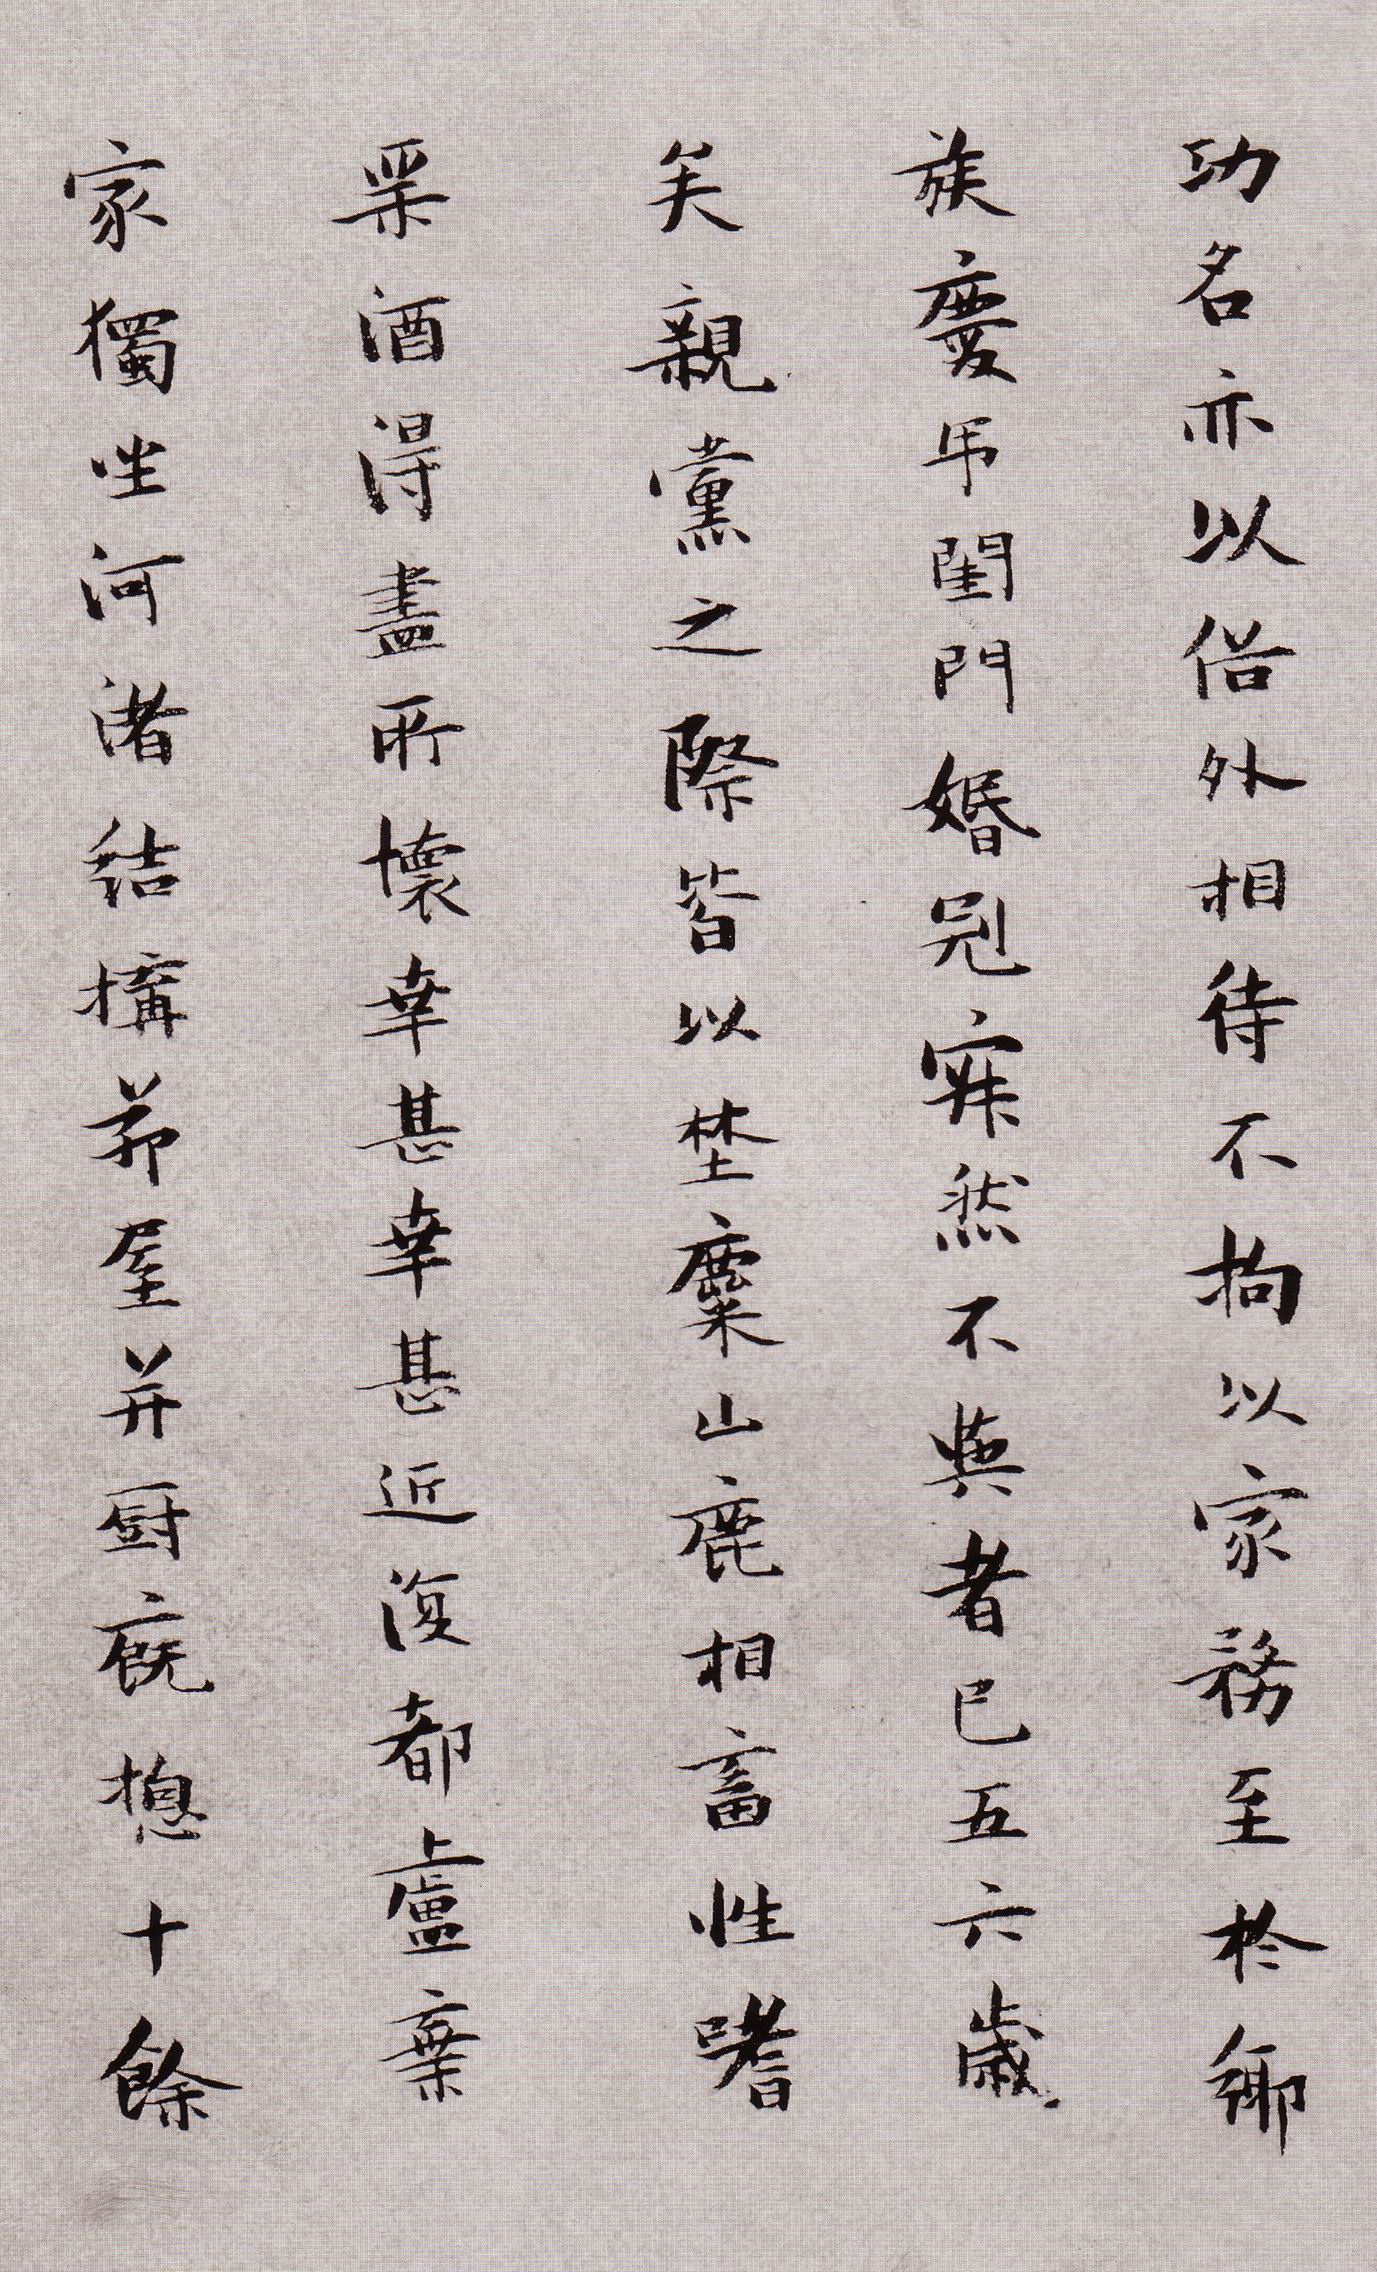 功名亦以俗外相待不拘以家務至於鄉
族慶吊閨門婚冠寂然不與者已五六歲
矣親黨之際皆以埜麋山鹿相畜性嗜
栗酒得盡所懷幸甚幸甚近復都上盧棄
家獨坐河渚結構茆屋并厨廐揔十餘